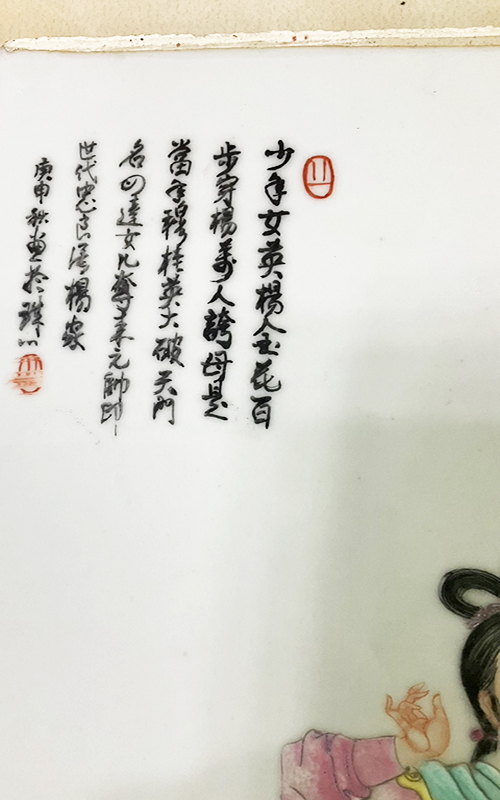 少年女英楊金花百
步穿楊萬人誇母是
當年穆桂英大破天門
名四達女兒奪來元帥印
世代忠良楊家
庚申秋畫於珠山